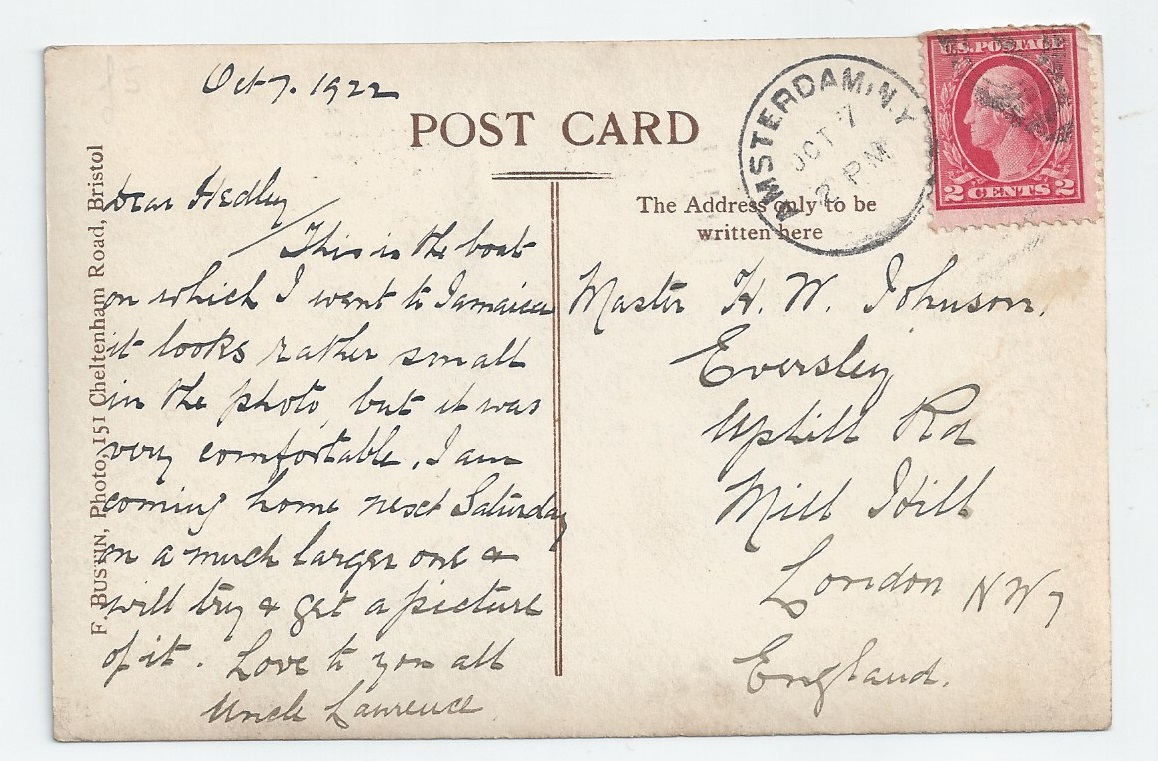 Oct 7. 1922
POST CARD
AMSTERDAM, N.Y.
OCT 7
2 PM
U.S. POSTAGE
2 CENTS 2
The Address only to be
written here
Dear Hedley
This is the boat
on which I went to Jamaica
it looks rather small
in the photo, but it was
very comfortable. I am
coming home next Saturday
on a much larger one &
will try & get a picture
of it. Love to you all
Uncle Lawrence
Master H. W. Johnson.
Eversley
Uphill Rd
Mill Hill
London NW7
England.
F. BUSTIN, Photo, 151 Cheltenham Road, Bristol